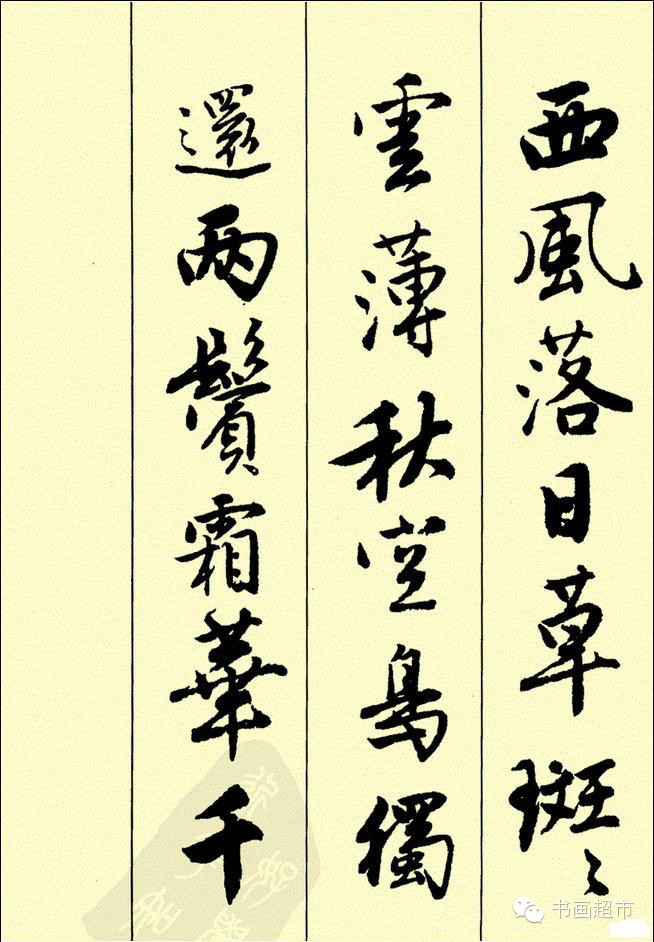 西風落日草斑々
雲薄秋空鳥獨
還兩鬢霜華千
书画超市